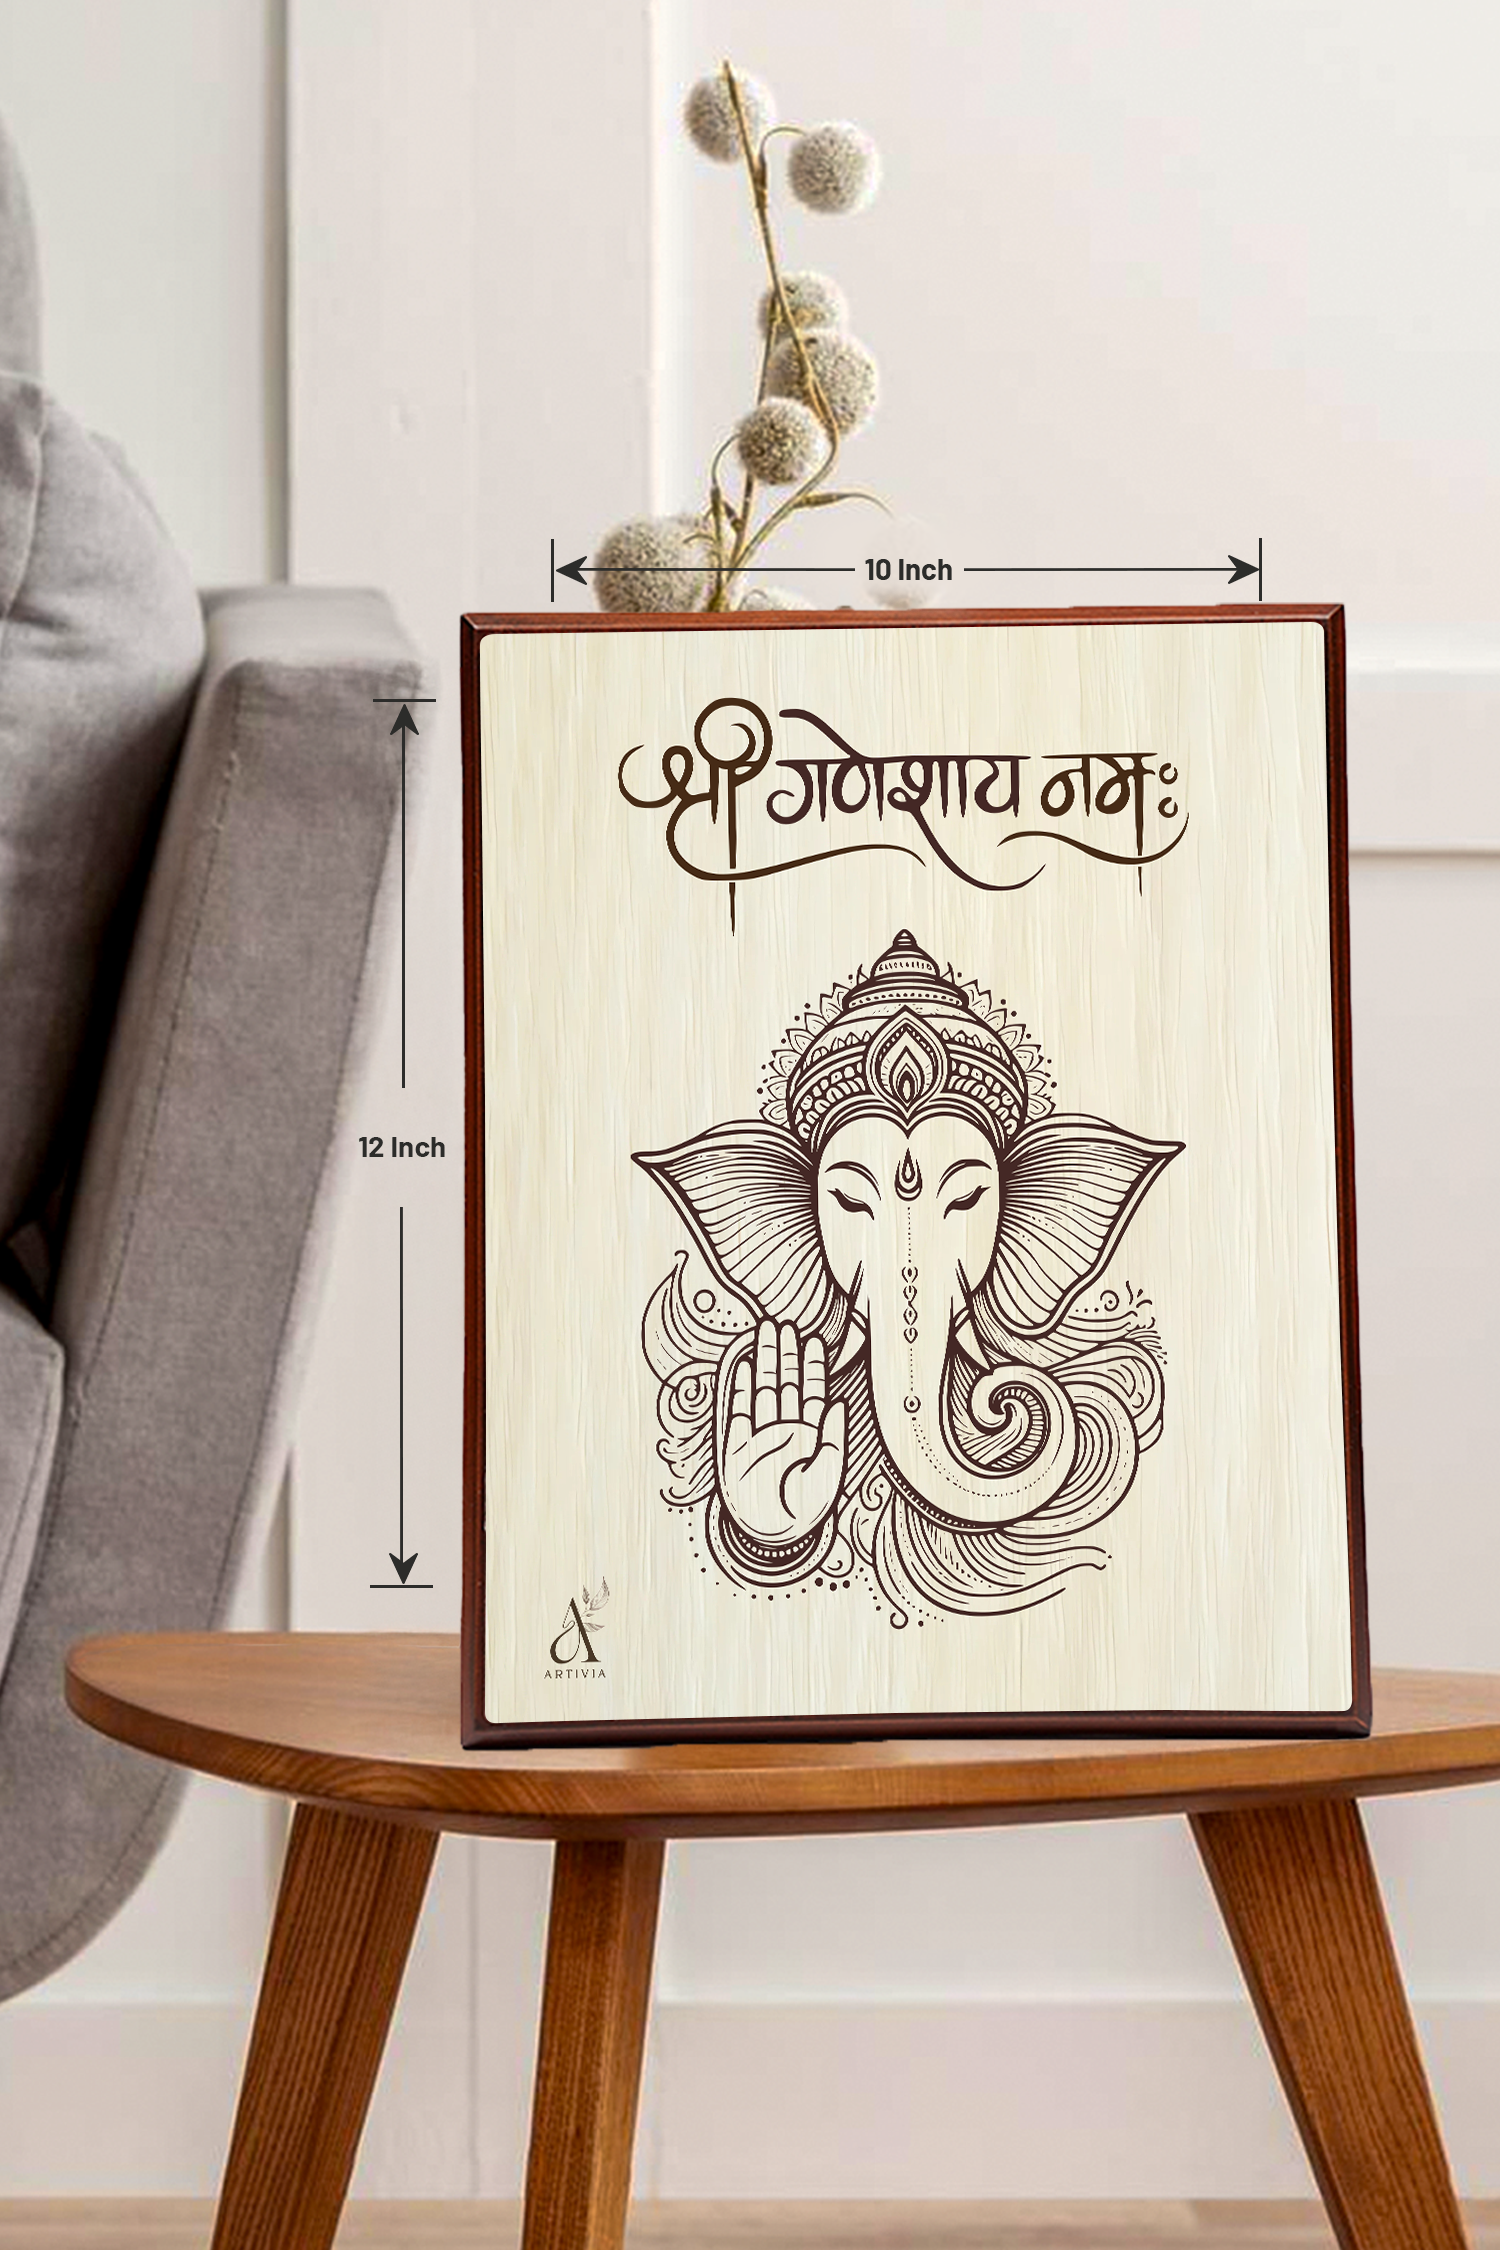 10 Inch
श्री गणेशाय नमः
12 Inch
ARTIVIA